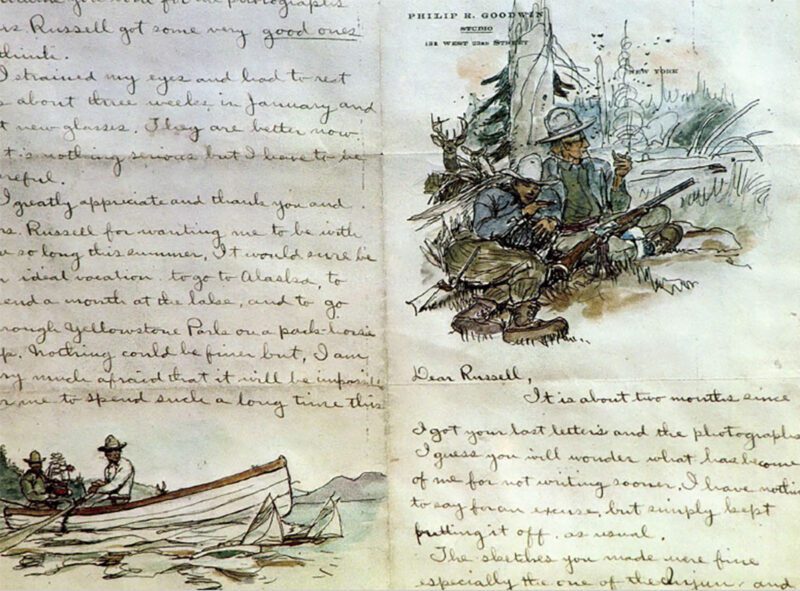 me for the photographs
Russell got some very good ones
think.
I strained my eyes and had to rest
about three weeks in January and
new glasses. They are better now
it's nothing serious but I have to be
careful.
I greatly appreciate and thank you and
rs. Russell for wanting me to be with
so long this summer. It would sure be
ideal vacation to go to Alaska, to
end a month at the lake, and to go
rough Yellowstone Park on a pack-horse
p. Nothing could be finer but, I am
ry much afraid that it will be impossible
me to spend such a long time this
PHILIP R. GOODWIN
STUDIO
132 WEST 23RD STREET
NEW YORK
Dear Russell,
It is about two months since
I got your last letters and the photographs
I guess you will wonder what has become
of me for not writing sooner. I have nothin
to say for an excuse, but simply kept
putting it off. as usual.
The sketches you made were fine
especially the one of the Injun and